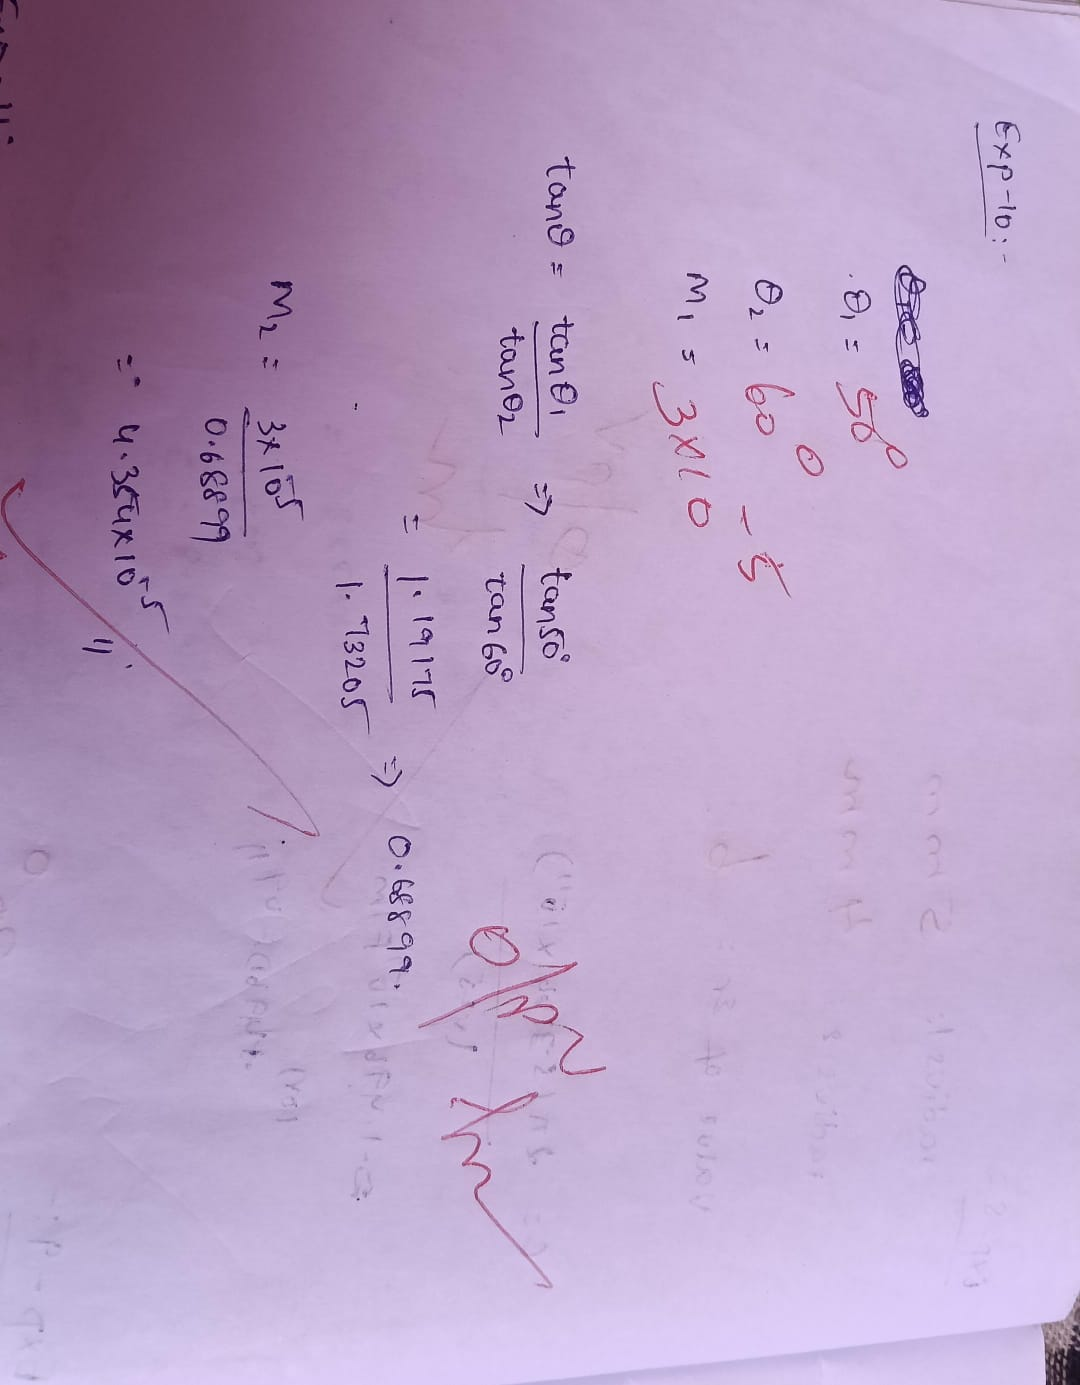 Exp-10:-
θ₁ = 50⁰
θ₂ = 60⁰
M₁ = 3×10⁻⁵
tanθ = tanθ₁/tanθ₂ => tan50°/tan60°
= 1.19175/1.73205 => 0.68899.
M₂ = 3×10⁻⁵/0.68899
= 4.354×10⁻⁵ //.